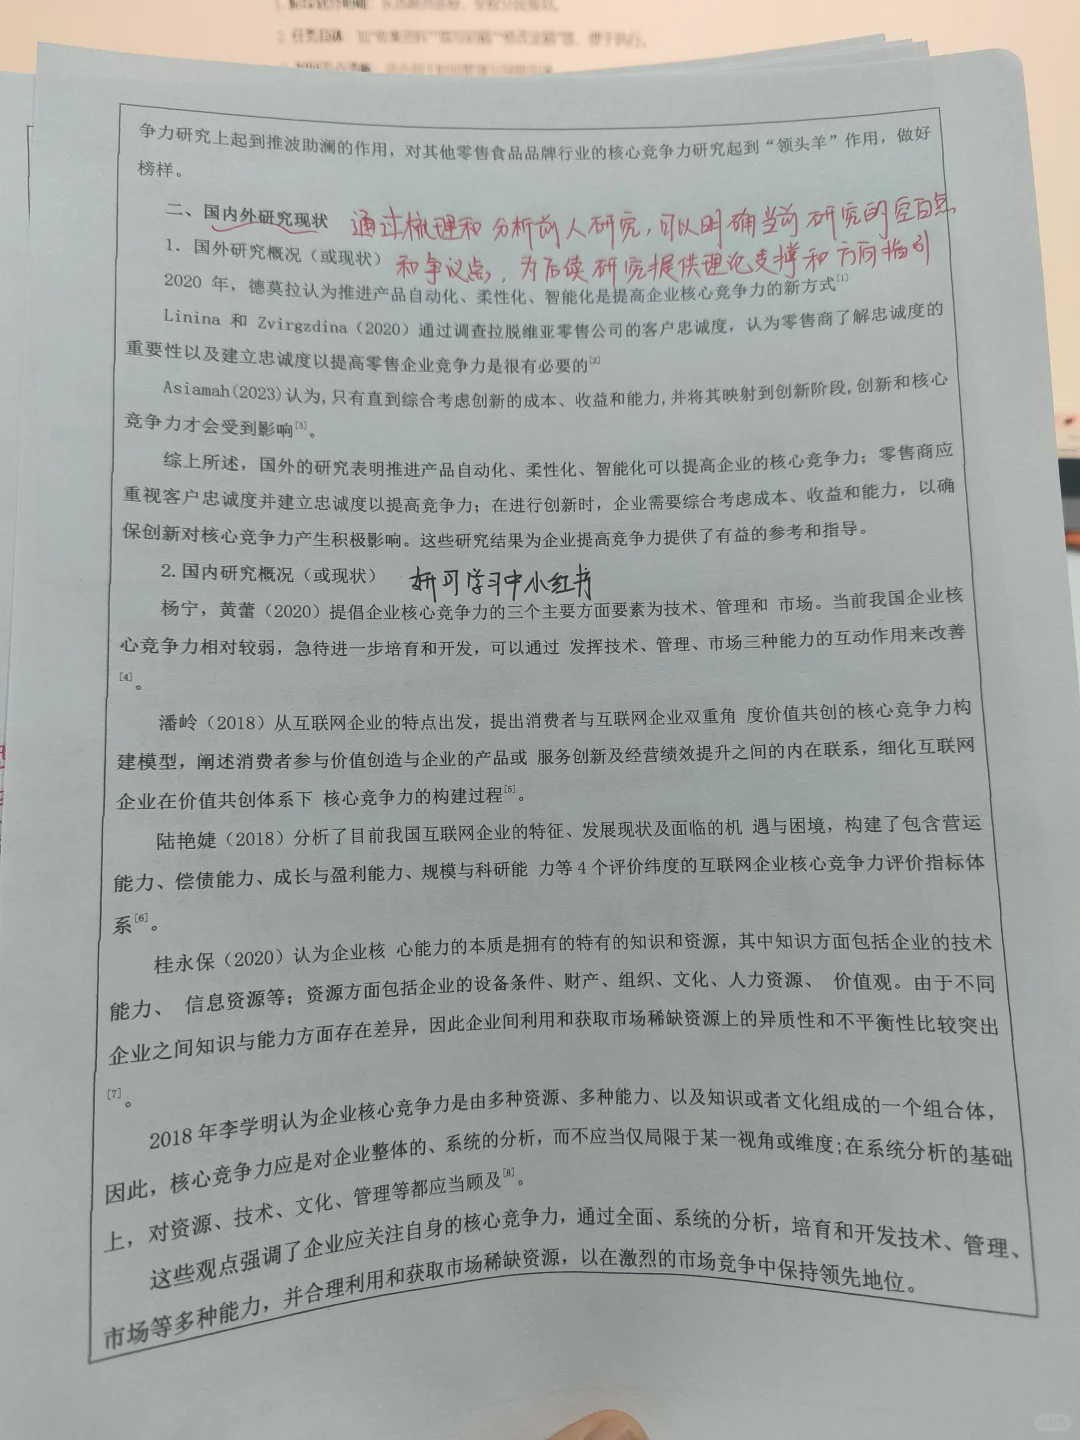 2. 任务
争力研究上起到推波助澜的作用，对其他零售食品品牌行业的核心竞争力研究起到“领头羊”作用，做好
榜样。
二、国内外研究现状
通过梳理和分析前人研究，可以明确当前研究的空白点
1. 国外研究概况（或现状）
和争议点，为后续研究提供理论支撑和方向指引
2020 年，德莫拉认为推进产品自动化、柔性化、智能化是提高企业核心竞争力的新方式[1]
Linina 和 Zvirgzdina（2020）通过调查拉脱维亚零售公司的客户忠诚度，认为零售商了解忠诚度的
重要性以及建立忠诚度以提高零售企业竞争力是很有必要的[2]
Asiamah(2023)认为,只有直到综合考虑创新的成本、收益和能力,并将其映射到创新阶段,创新和核心
竞争力才会受到影响[3]。
综上所述，国外的研究表明推进产品自动化、柔性化、智能化可以提高企业的核心竞争力；零售商应
重视客户忠诚度并建立忠诚度以提高竞争力；在进行创新时，企业需要综合考虑成本、收益和能力，以确
保创新对核心竞争力产生积极影响。这些研究结果为企业提高竞争力提供了有益的参考和指导。
2.国内研究概况（或现状）
研可学习中小红书
杨宁，黄蕾（2020）提倡企业核心竞争力的三个主要方面要素为技术、管理和 市场。当前我国企业核
心竞争力相对较弱，急待进一步培育和开发，可以通过 发挥技术、管理、市场三种能力的互动作用来改善
[4]。
潘岭（2018）从互联网企业的特点出发，提出消费者与互联网企业双重角 度价值共创的核心竞争力构
建模型，阐述消费者参与价值创造与企业的产品或 服务创新及经营绩效提升之间的内在联系，细化互联网
企业在价值共创体系下 核心竞争力的构建过程[5]。
陆艳婕（2018）分析了目前我国互联网企业的特征、发展现状及面临的机 遇与困境，构建了包含营运
能力、偿债能力、成长与盈利能力、规模与科研能 力等 4 个评价纬度的互联网企业核心竞争力评价指标体
系[6]。
桂永保（2020）认为企业核 心能力的本质是拥有的特有的知识和资源，其中知识方面包括企业的技术
能力、 信息资源等；资源方面包括企业的设备条件、财产、组织、文化、人力资源、 价值观。由于不同
企业之间知识与能力方面存在差异，因此企业间利用和获取市场稀缺资源上的异质性和不平衡性比较突出
[7]。
2018 年李学明认为企业核心竞争力是由多种资源、多种能力、以及知识或者文化组成的一个组合体，
因此，核心竞争力应是对企业整体的、系统的分析，而不应当仅局限于某一视角或维度;在系统分析的基础
上，对资源、技术、文化、管理等都应当顾及[8]。
这些观点强调了企业应关注自身的核心竞争力，通过全面、系统的分析，培育和开发技术、管理、
市场等多种能力，并合理利用和获取市场稀缺资源，以在激烈的市场竞争中保持领先地位。